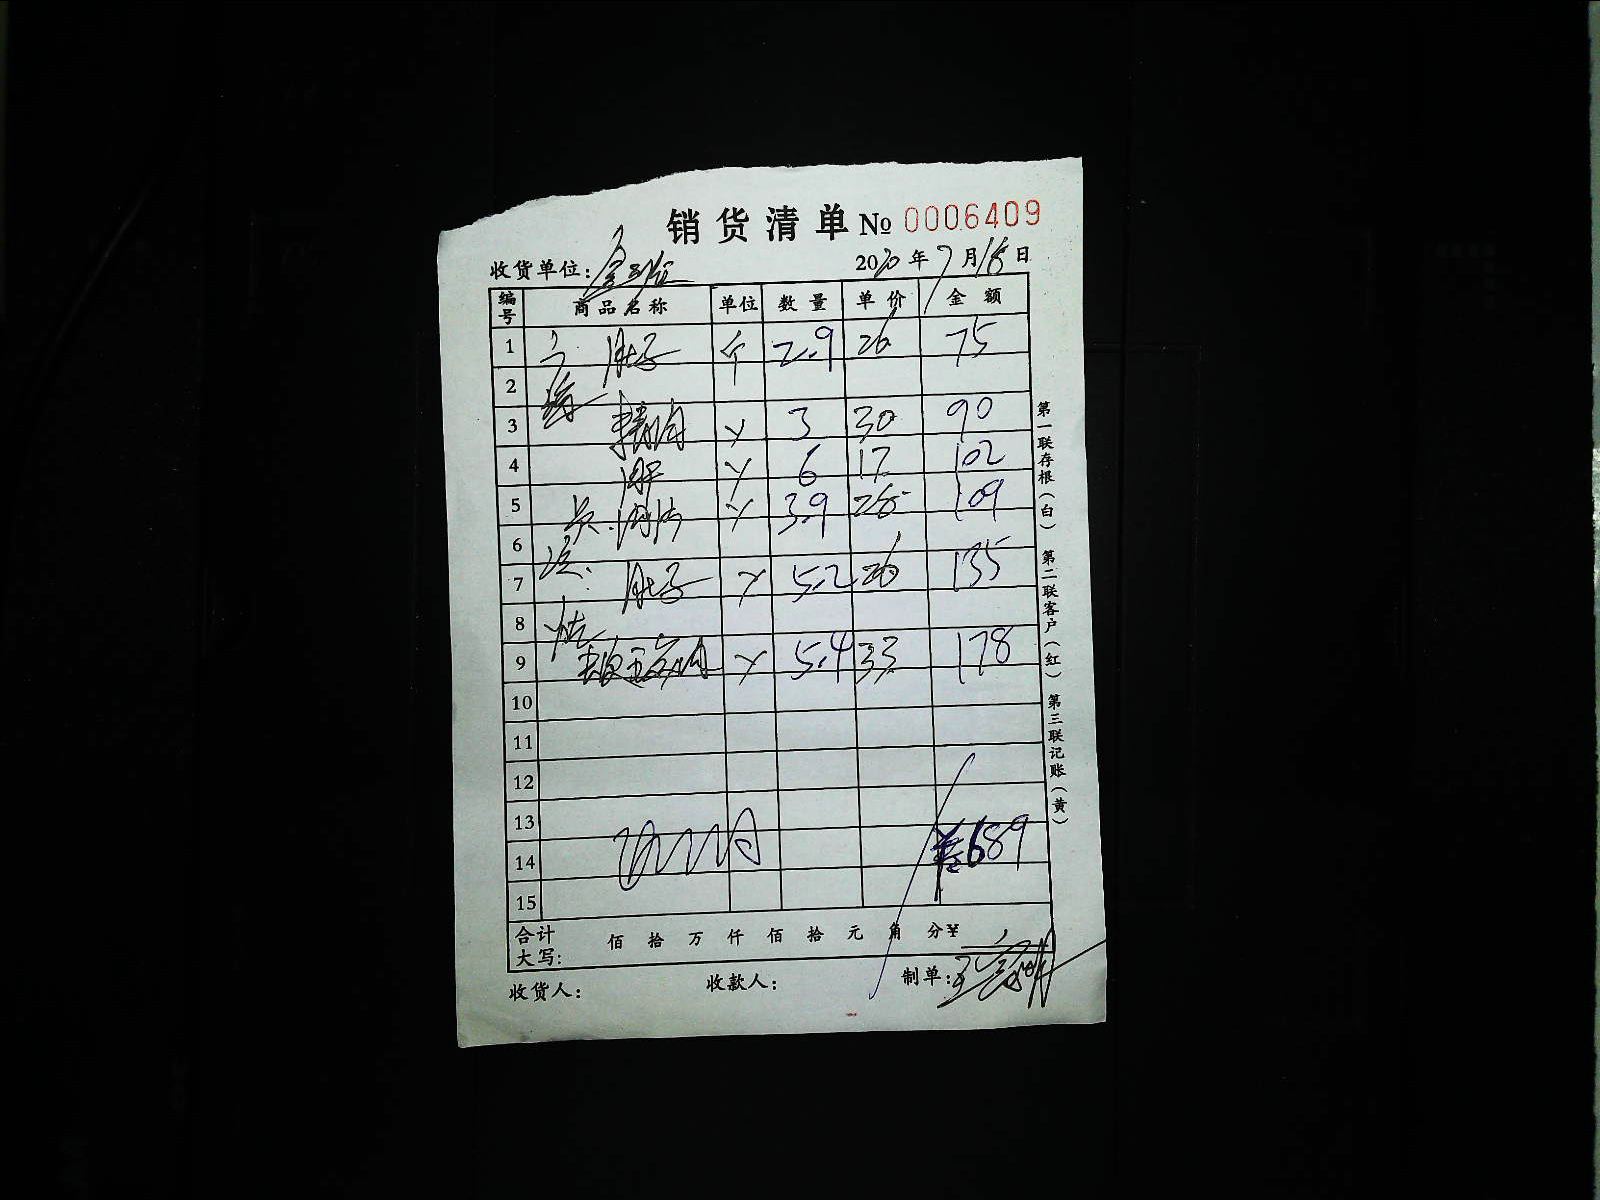 销货清单 № 0006409
收货单位:
2020年7月18日
编号 商品名称 单位 数量 单价 金额
1 肚子 个 2.9 26 75
2
3 精肉 3 30 90
4 6 17 102
5 3.9 28 109
6
7 肚子 5.2 26 135
8
9 5.4 33 178
10
11
12
13
14 689
15
合计大写: 佰 拾 万 仟 佰 拾 元 角 分 ¥
收货人: 收款人: 制单:
第一联存根(白) 第二联客户(红) 第三联记账(黄)